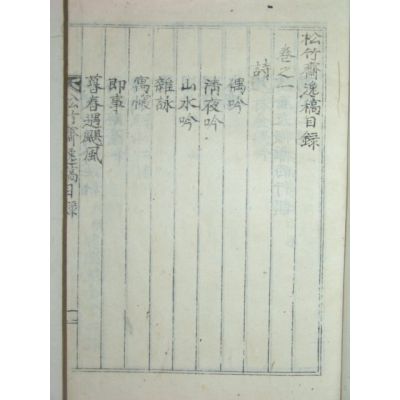 松竹齋逸稿目錄
卷之一
詩
偶吟
淸夜吟
山水吟
雜詠
寓懷
即事
暮春遇颶風
松竹齋逸稿目錄
一